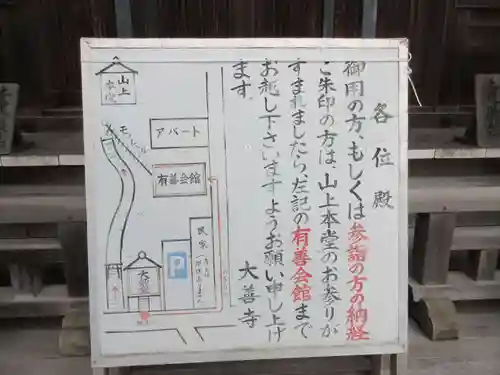 各位殿
御用の方、もしくは参詣の方の納経
ご朱印の方は、山上本堂のお参りが
すまれましたら、左記の有善会館まで
お越し下さいますようお願い申し上げ
ます。
大善寺
山上
本堂
モノレール
アパート
有善会館
民家
P